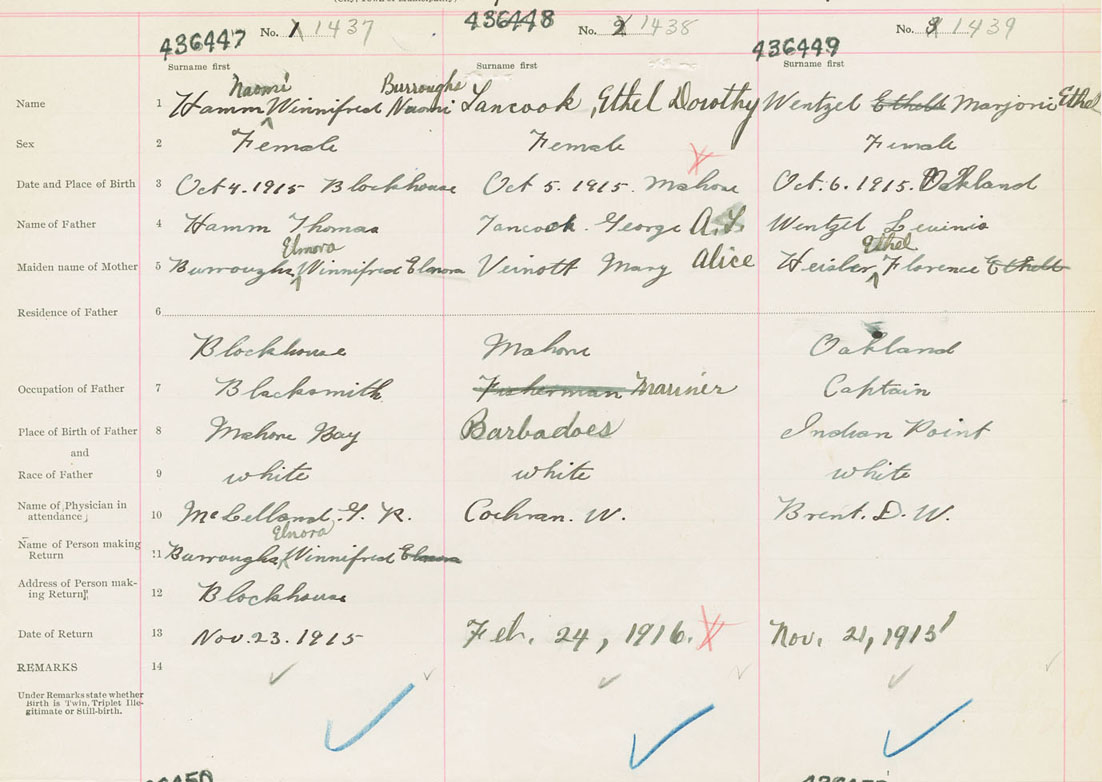 436447 No. 1 1437 436448 No. 2 1438 436449 No. 3 1439
Surname first Surname first Surname first
Naomi Burroughs
Name 1 Hamm, Winnifred Naomi Tancook, Ethel Dorothy Wentzel Ethelt Marjorie Ethel
Sex 2 Female Female Female
Date and Place of Birth 3 Oct 4. 1915 Blockhouse Oct 5. 1915. Mahone Oct. 6. 1915. Oakland
Name of Father 4 Hamm Thomas Tancook. George A. L. Wentzel Levinis
Elnora Ethel
Maiden name of Mother 5 Burroughs, Winnifred Elnora Veinott Mary Alice Heisler, Florence Ethelt
Residence of Father 6
Blockhouse Mahone Oakland
Occupation of Father 7 Blacksmith Fisherman Mariner Captain
Place of Birth of Father 8 Mahone Bay Barbadoes Indian Point
and
Race of Father 9 white white white
Name of Physician in
attendance 10 McLelland, G. R. Cochran. W. Brent. D. W.
Elnora
Name of Person making
Return 11 Burroughs, Winnifred Elnora
Address of Person mak-
ing Return 12 Blockhouse
Date of Return 13 Nov. 23. 1915 Feb. 24, 1916. Nov. 21, 1915
REMARKS 14
Under Remarks state whether
Birth is Twin, Triplet Ille-
gitimate or Still-birth.